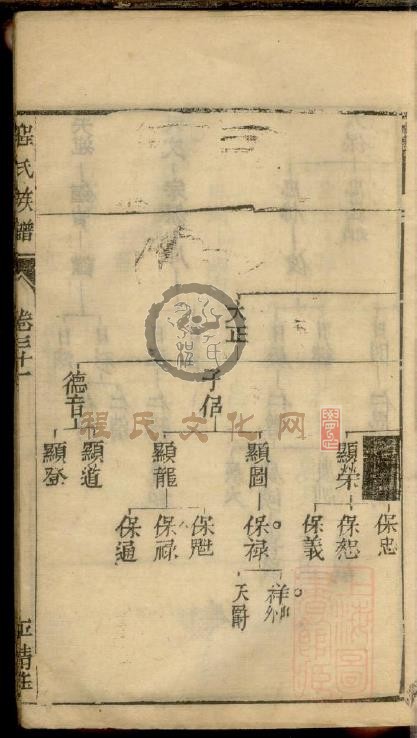 程氏族譜
卷三十一
天正
子侣
德音
顯榮
顯圖
顯龍
顯道
顯登
保忠
保恕
保義
保禄
保禄
保通
天爵
程氏文化网